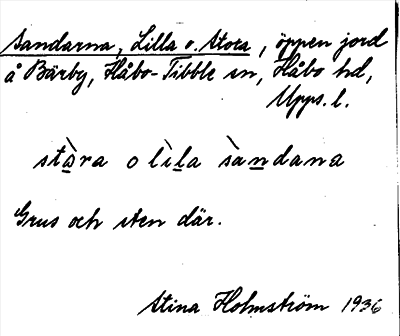 Sandarna, Lilla o. Stora, öppen jord
å Bärby, Håbo-Tibble sn, Håbo hd,
Upps. l.
stàra o lìla sàndana
Grus och sten där.
Stina Holmström 1936